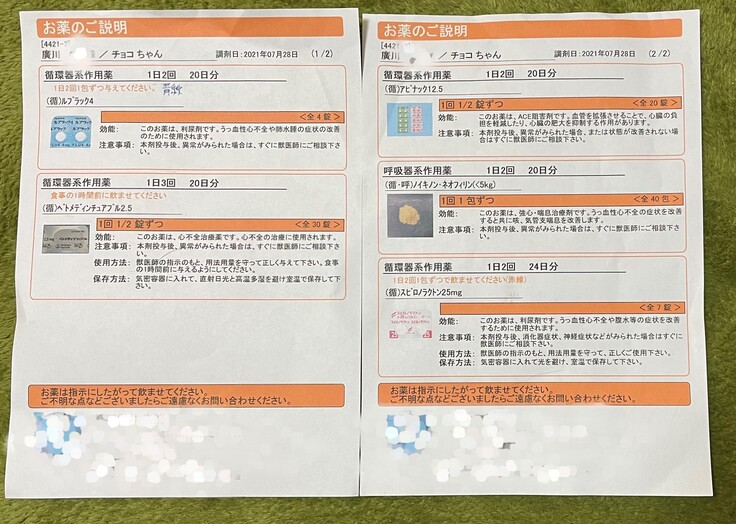 お薬のご説明
[4421-
廣川 / チョコ ちゃん 調剤日:2021年07月28日 (1/2)
循環器系作用薬 1日2回 20日分
1日2回1包ずつ与えてください。 青線
(循)ルプラック4
<全 4 錠>
効能: このお薬は、利尿剤です。うっ血性心不全や肺水腫の症状の改善のために使用されます。
注意事項: 本剤投与後、異常がみられた場合は、すぐに獣医師にご相談下さい。
循環器系作用薬 1日3回 20日分
食事の1時間前に飲ませてください
(循)ベトメディンチュアブル2.5
1回 1/2 錠ずつ <全 30 錠>
効能: このお薬は、心不全治療薬です。心不全の治療に使用されます。
注意事項: 本剤投与後、異常がみられた場合は、すぐに獣医師にご相談下さい。
使用方法: 獣医師の指示のもと、用法用量を守って正しく与えて下さい。食事の1時間前に与えるようにしてください。
保存方法: 気密容器に入れて、直射日光と高温多湿を避け室温で保存して下さい。
お薬は指示にしたがって飲ませてください。
ご不明な点などございましたらご遠慮なくお問い合わせください。
お薬のご説明
[4421-
廣川 / チョコ ちゃん 調剤日:2021年07月28日 (2/2)
循環器系作用薬 1日2回 20日分
(循)アピナック12.5
1回 1/2 錠ずつ <全 20 錠>
効能: このお薬は、ACE阻害剤です。血管を拡張させることで、心臓の負担を軽減したり、心臓の肥大を抑制する作用があります。
注意事項: 本剤投与後、異常がみられた場合、または状態が改善されない場合はすぐに獣医師にご相談下さい。
呼吸器系作用薬 1日2回 20日分
(循・呼)ノイキノン・ネオフィリン(<5kg)
1回 1 包ずつ <全 40 包>
効能: このお薬は、強心・喘息治療剤です。うっ血性心不全の症状を改善すると共に咳、気管支喘息を改善します。
注意事項: 本剤投与後、異常がみられた場合は、すぐに獣医師にご相談下さい。
循環器系作用薬 1日2回 24日分
1日2回1包ずつで飲ませてください(赤線)
(循)スピロノラクトン25mg
<全 7 錠>
効能: このお薬は、利尿剤です。うっ血性心不全や腹水等の症状を改善するために使用されます。
注意事項: 本剤投与後、消化器症状、神経症状などがみられた場合はすぐに獣医師にご相談下さい。
使用方法: 獣医師の指示のもと、用法用量を守って、正しくご使用下さい。
保存方法: 気密容器に入れて光を避け、室温で保存して下さい。
お薬は指示にしたがって飲ませてください。
ご不明な点などございましたらご遠慮なくお問い合わせください。